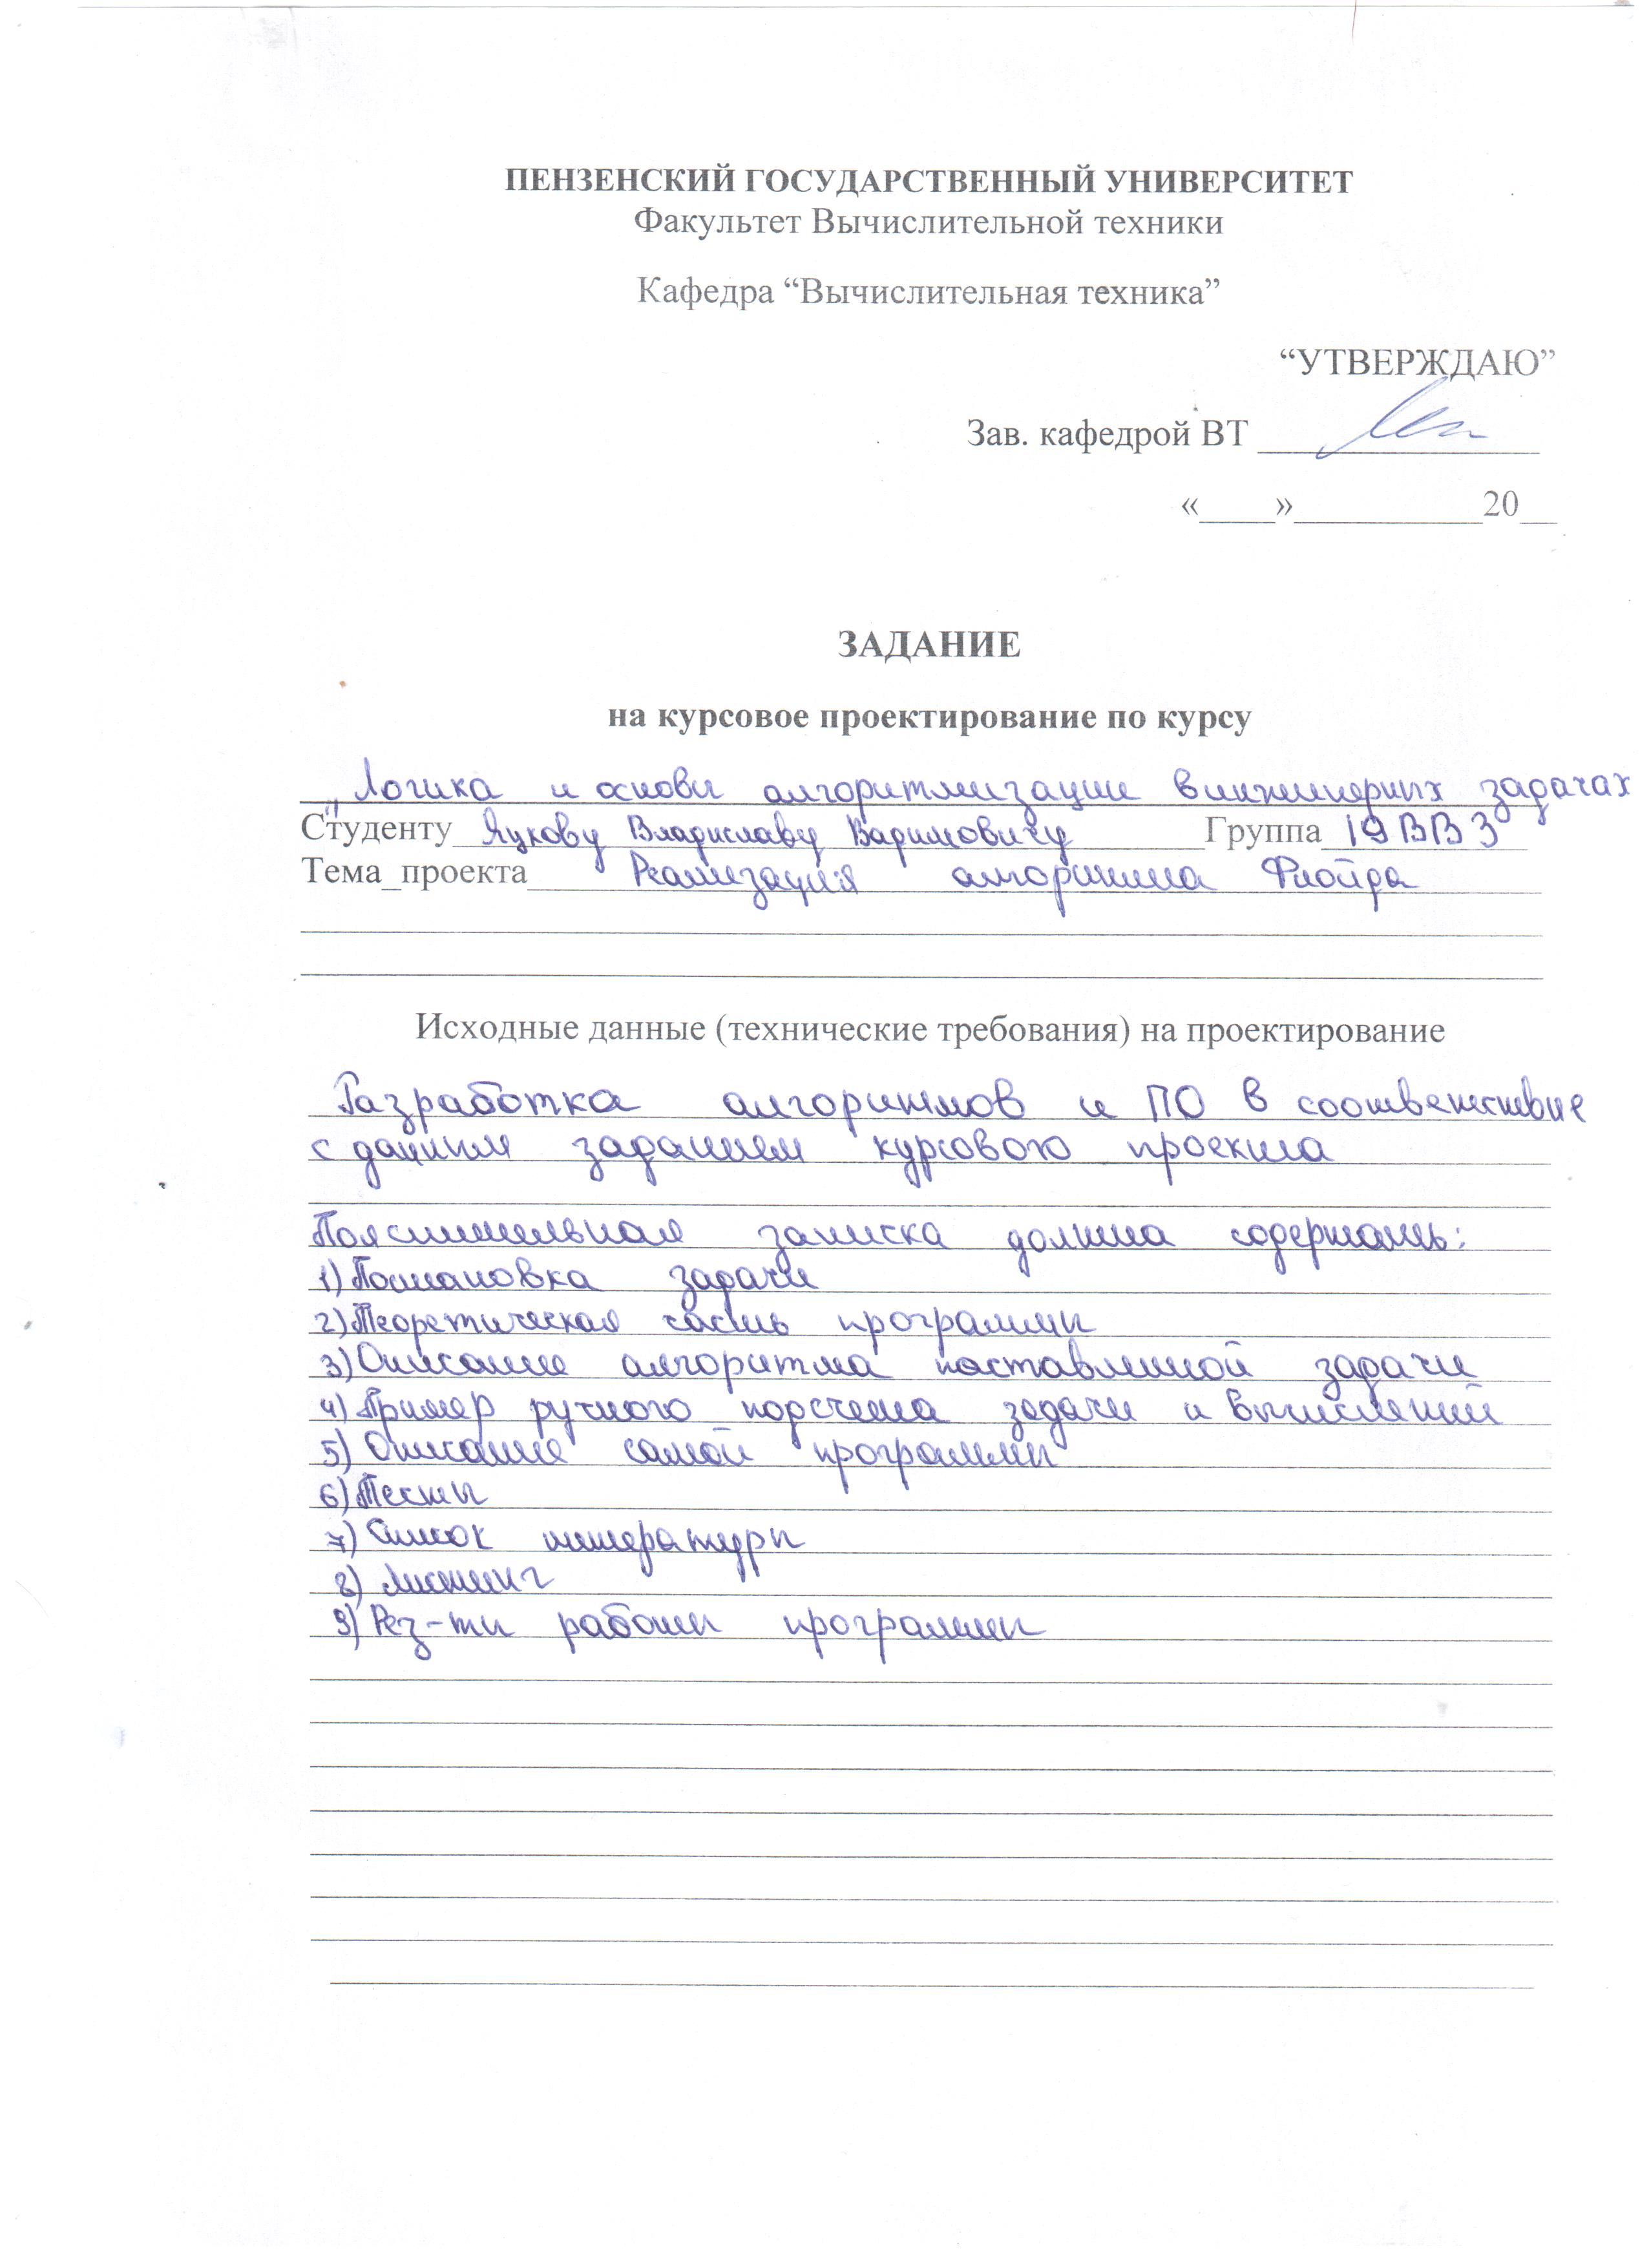 ПЕНЗЕНСКИЙ ГОСУДАРСТВЕННЫЙ УНИВЕРСИТЕТ
Факультет Вычислительной техники
Кафедра “Вычислительная техника”
“УТВЕРЖДАЮ”
Зав. кафедрой ВТ
«____»__________20__
ЗАДАНИЕ
на курсовое проектирование по курсу
„Логика и основы алгоритмизации в инженерных задачах
Студенту Яцкову Владиславу Вадимовичу Группа 19ВВ3
Тема_проекта Реализация алгоритма Флойда
Исходные данные (технические требования) на проектирование
Разработка алгоритмов и ПО в соответствие
с данным заданием курсового проекта
Пояснительная записка должна содержать:
1) Постановка задачи
2) Теоретическая часть программы
3) Описание алгоритма поставленной задачи
4) Пример ручного подсчета задачи и вычислений
5) Описание самой программы
6) Тесты
7) Список литературы
8) Листинг
9) Рез-ты работы программы